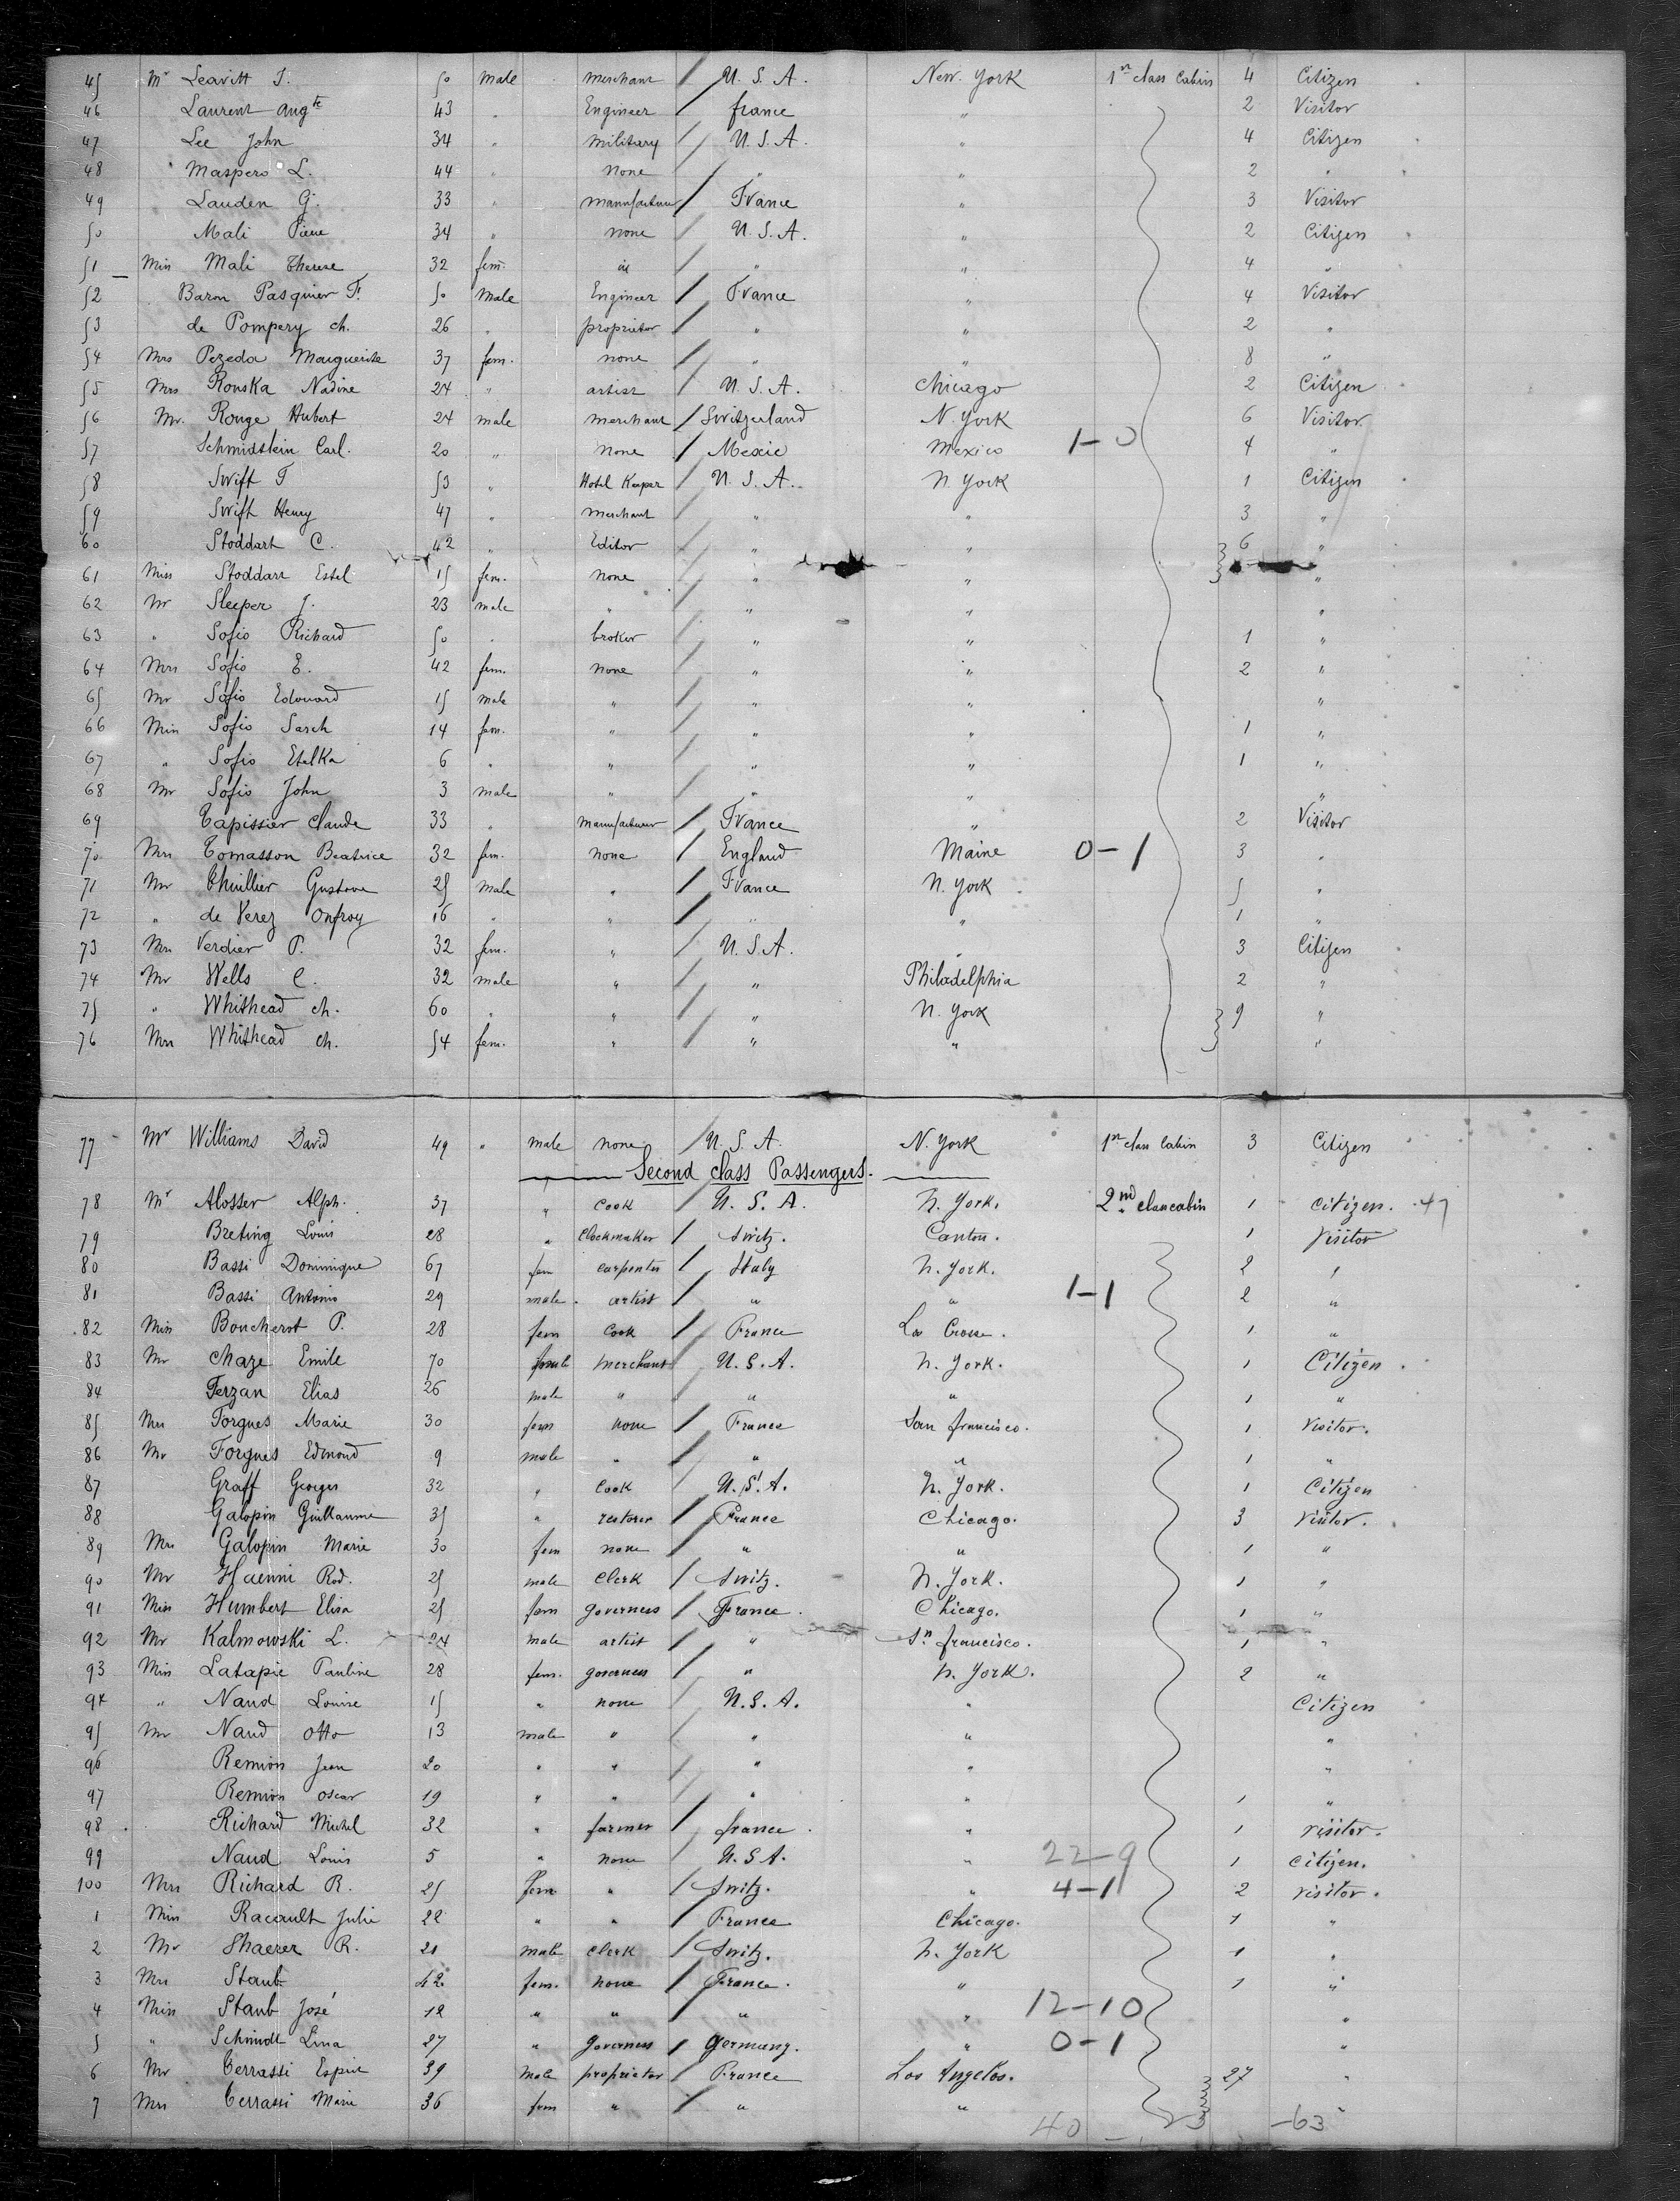 45 Mr Leavitt J. 50 Male merchant / U. S. A. New York 1st class Cabin 4 Citizen
46 Laurent Augte 43 " Engineer / france " 2 Visitor
47 Lee John 34 " military / U. S. A. " 4 Citizen
48 " Maspero L. 44 " none / " " 2 "
49 Lauden G. 33 " manufacturer / France " 3 Visitor
50 Mali Pierre 34 " none / U. S. A. " 2 Citizen
51 Miss Mali Therese 32 fem. / " " 4 "
52 Baron Pasquier F. 50 Male Engineer / France " 4 Visitor
53 de Pompery ch. 26 " proprietor / " " 2 "
54 Mrs Pezeda Marguerite 37 fem. none / " " 8 "
55 Mrs Ronska Nadine 24 " artist / U. S. A. Chicago 2 Citizen
56 Mr. Rouge Hubert 24 male merchant / Switzerland N. York 6 Visitor
57 Schmidtlein Carl. 20 " none / Mexic Mexico 1-0 4 "
58 Swift F 53 " Hotel Keeper / U. S. A. N. York 1 Citizen
59 Swift Henry 47 " merchant / " " 3 "
60 Stoddart C. 42 " Editor / " " 6 "
61 Miss Stoddart Estel 15 fem. none / " " "
62 Mr Sleeper J. 23 male " / " " "
63 " Sofio Richard 50 " broker / " " 1 "
64 Mrs Sofio E. 42 fem. none / " " 2 "
65 Mr Sofio Edouard 15 male " / " " "
66 Miss Sofio Sarah 14 fem. " / " " 1 "
67 " Sofio Etelka 6 " " / " " 1 "
68 Mr Sofio John 3 male " / " " "
69 Tapissier Claude 33 " manufacturer / France " 2 Visitor
70 Mrs Tomasson Beatrice 32 fem. none / England Maine 0-1 3 "
71 Mr Thuillier Gustave 25 male " / France N. York 5 "
72 " de Verez Onfroy 16 " " / " " 1 "
73 Mrs Verdier P. 32 fem. " / U. S. A. " 3 Citizen
74 Mr Wells C. 32 male " / " Philadelphia 2 "
75 " Whithead ch. 60 " " / " N. York 9 "
76 Mrs Whithead ch. 54 fem. " / " " "
77 Mr Williams David 49 " male none / U. S. A. N. York 1st class Cabin 3 Citizen
Second class Passengers.
78 Mr Alosser Alph. 37 " cook / U. S. A. N. York. 2nd class cabin 1 Citizen. 47
79 Breting Louis 28 " Clockmaker / Switz. Canton. 1 Visitor
80 Bassi Dominique 67 fem carpenter / Italy N. York. 2 "
81 Bassi Antonio 29 male artist / " " 1-1 2 "
82 Miss Boucherot P. 28 fem Cook / France La Crosse. 1 "
83 Mr Chaze Emile 70 merchant / U. S. A. N. York. 1 Citizen
84 Ferzan Elias 26 male " / " " 1 "
85 Mrs Forgues Marie 30 fem none / France San francisco. 1 Visitor.
86 Mr Forgues Edmond 9 male " / " " 1 "
87 Graff Georges 32 " cook / U. S. A. N. York. 1 Citizen
88 Galopin Guillaume 35 " restorer / France Chicago. 3 Visitor.
89 Mrs Galopin Marie 30 fem none / " " 1 "
90 Mr Haenni Rod. 25 male Clerk / Switz. N. York. 1 "
91 Miss Humbert Elisa 25 fem governess / France. Chicago. 1 "
92 Mr Kalmowski L. 24 male artist / " Sn francisco. 1 "
93 Miss Latapie Pauline 28 fem. governess / " N. York. 2 "
94 " Naud Louise 15 " none / U. S. A. " Citizen
95 Mr Naud Otto 13 male " / " " "
96 Remion Jean 20 " " / " " "
97 Remion Oscar 19 " " / " " 1 "
98 Richard Michel 32 " farmer / france. " 1 visitor.
99 Naud Louis 5 " none / U. S A. " 22-9 1 citizen.
100 Mrs Richard R. 25 fem " / Switz. " 4-1 2 visitor.
1 Miss Racault Julie 22 " " / France Chicago. 1 "
2 Mr Shaerer R. 21 male clerk / Switz. N. York 1 "
3 Mrs Staub 42 fem. none / France. " 1 "
4 Miss Staub José 12 " " / " " 12-10 "
5 " Schmidt Lina 27 " Governess / Germany. " 0-1 "
6 Mr Terrassi Esprit 39 Male proprietor / France Los Angelos. 27 "
7 Mrs Terrassi Marie 36 fem " / " " "
40 - -63